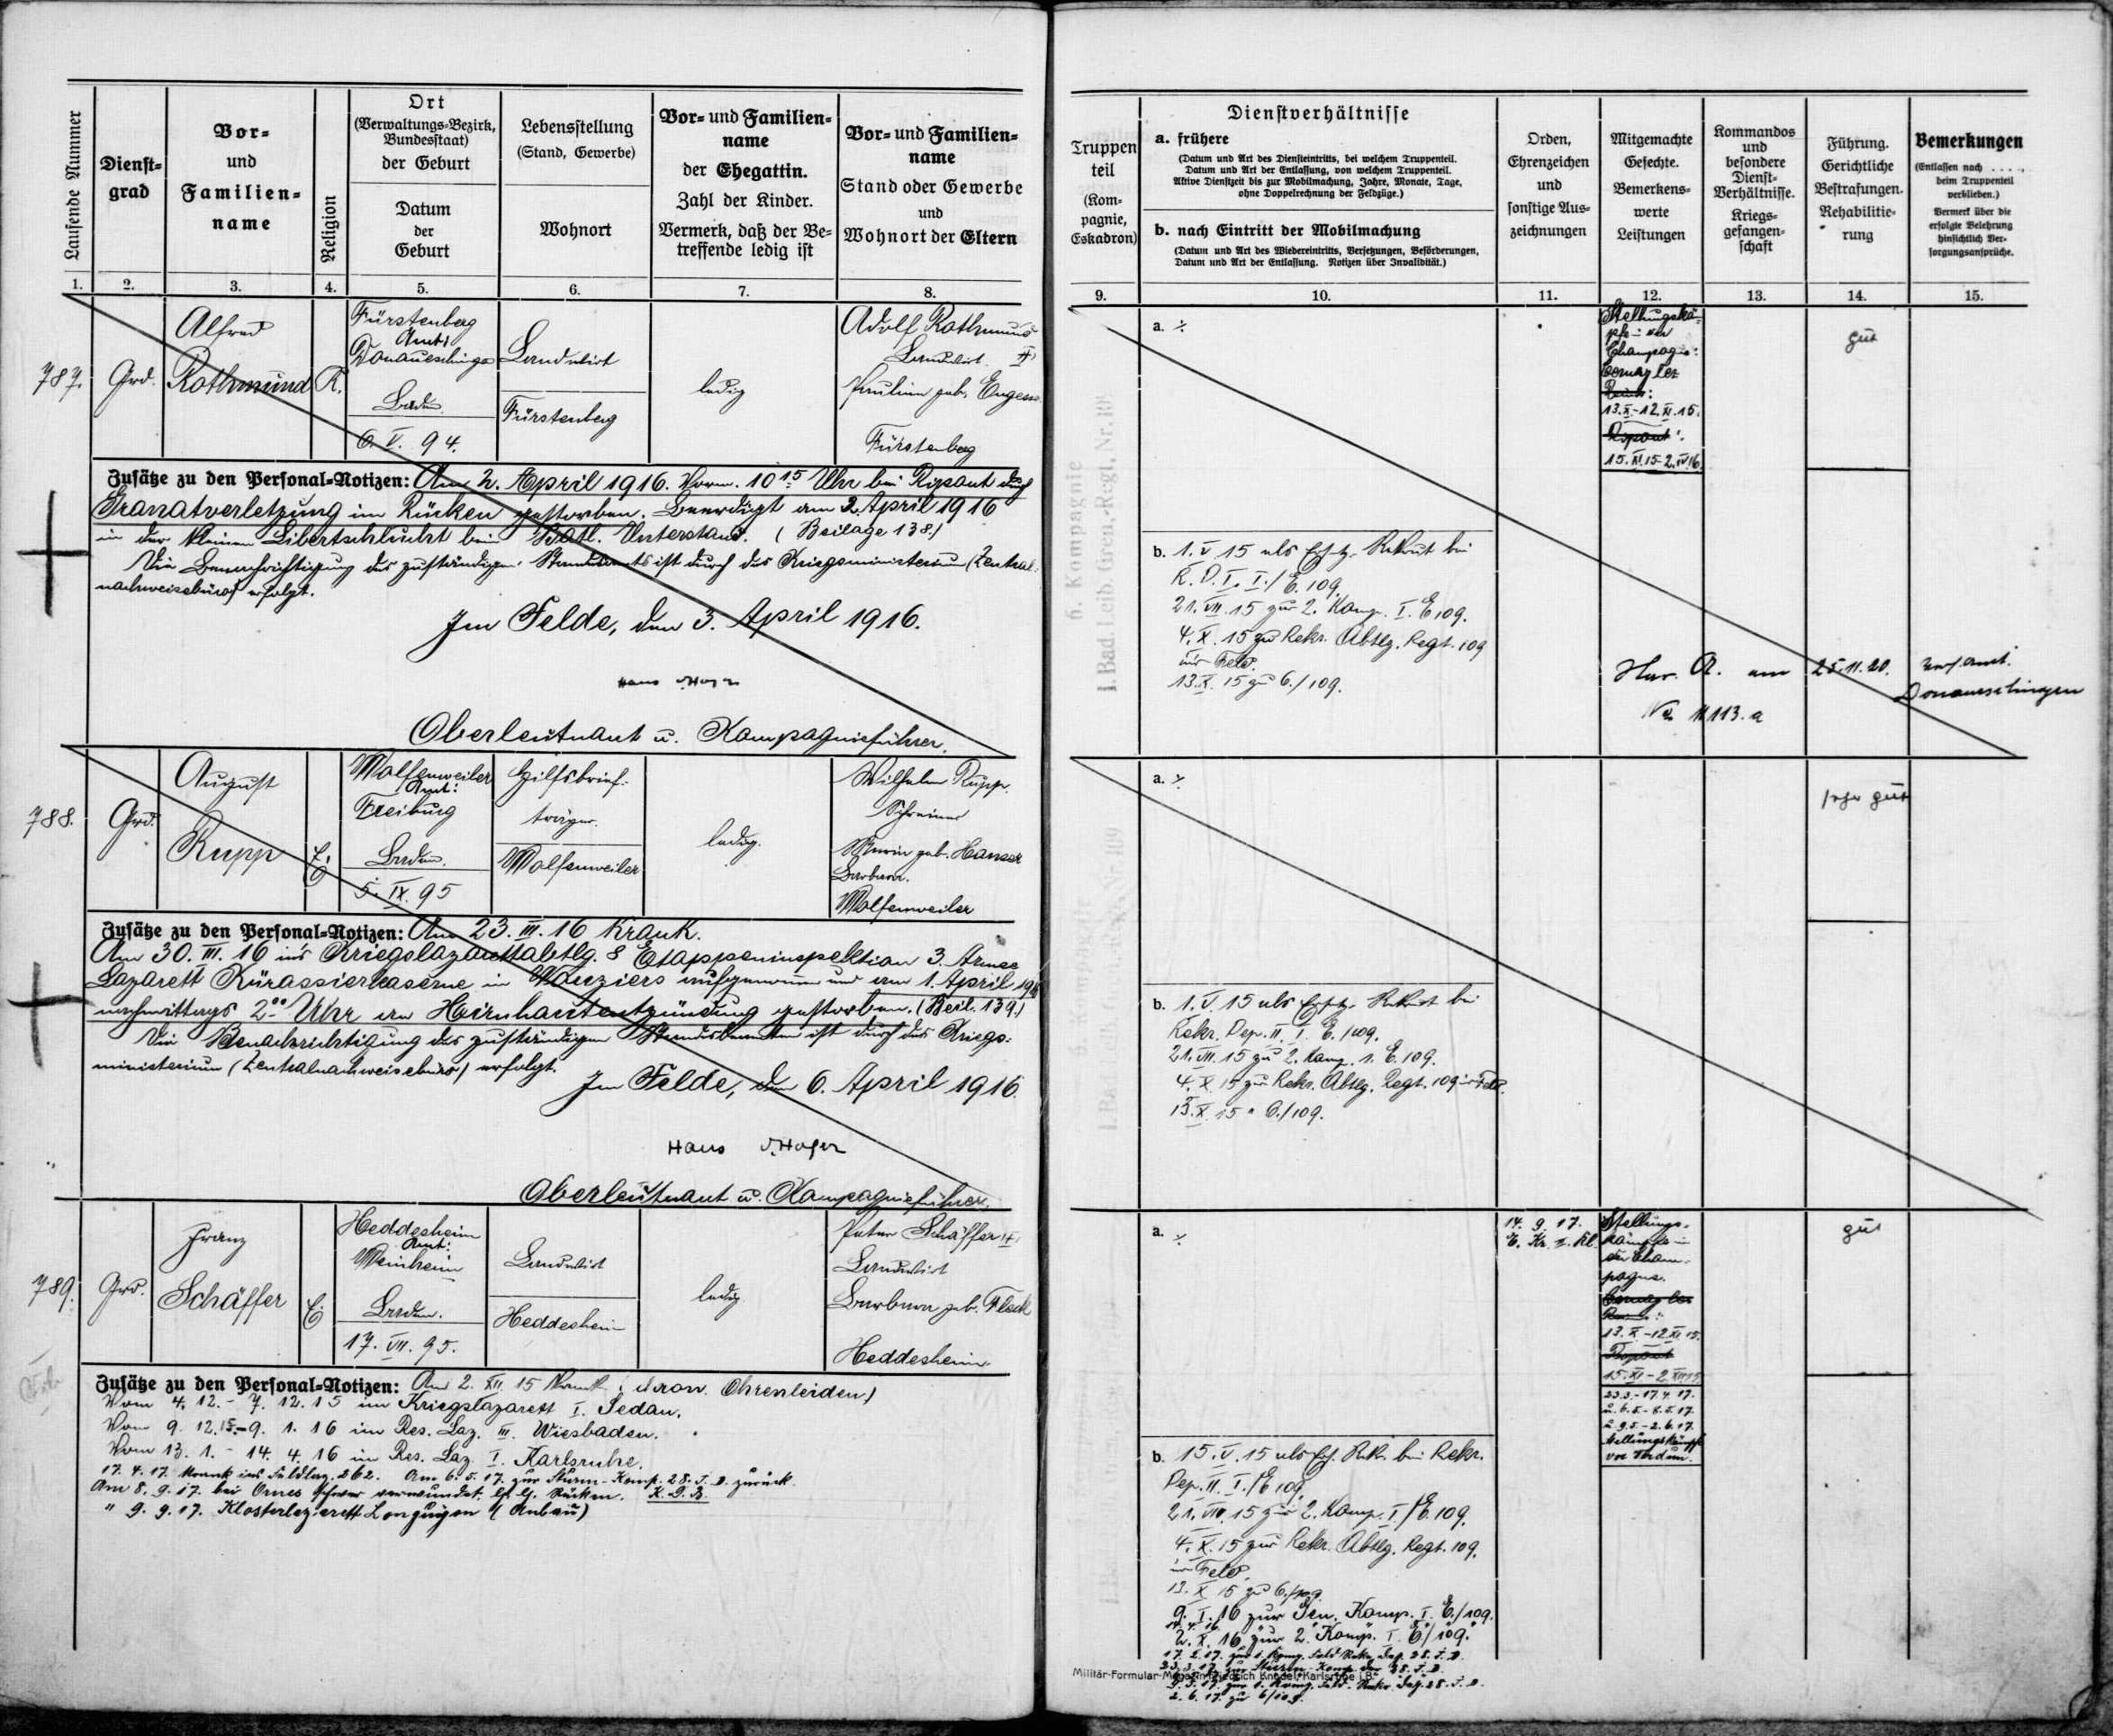 Laufende Nummer
Dienst=
grad
Vor=
und
Familien=
name
Religion
Ort
(Verwaltungs=Bezirk,
Bundesstaat)
der Geburt
Datum
der
Geburt
Lebensstellung
(Stand, Gewerbe)
Wohnort
Vor= und Familien=
name
der Ehegattin.
Zahl der Kinder.
Vermerk, daß der Be=
treffende ledig ist
Vor= und Familien=
name
Stand oder Gewerbe
und
Wohnort der Eltern
1. 2. 3. 4. 5. 6. 7. 8.
787. Grd.
Alfred
Rothmund
R.
Fürstenberg
Amt:
Donaueschingen
Baden
6. V. 94.
Landwirt
Fürstenberg
ledig
Adolf Rothmund
Landwirt
Pauline geb. Engesser
Fürstenberg
Zusätze zu den Personal=Notizen: Am 2. April 1916. Vorm. 10 15 Uhr bei Ripont durch
Granatverletzung im Rücken gestorben. Beerdigt am 2. April 1916
in der kleinen Libertschlucht beim Batl. Unterstand. (Beilage 138.)
Die Benachrichtigung des zuständigen Standesamts ist durch das Kriegsministerium (Zentral=
nachweisebüro) erfolgt.
Im Felde, den 3. April 1916.
Oberleutnant u. Kompagnieführer.
788. Grd.
August
Rupp
E.
Wolfenweiler
Amt:
Freiburg
Baden.
5. IX. 95
Hilfsbrief=
träger.
Wolfenweiler
ledig.
Wilhelm Rupp.
Schreiner
geb. Hanser
Barbara.
Wolfenweiler
Zusätze zu den Personal=Notizen: Am 23. III. 16 krank.
Am 30. III. 16 ins Kriegslazarettabtlg. 8 Etappeninspektion 3. Armee
Lazarett Kürassierkaserne in Vouziers aufgenommen und am 1. April 1916
nachmittags 2 00 Uhr an Hirnhautentzündung gestorben. (Beil. 139.)
Die Benachrichtigung des zuständigen Standesbeamten ist durch das Kriegs=
ministerium (Zentralnachweisebüro) erfolgt.
Im Felde, den 6. April 1916.
Hans
Oberleutnant u. Kompagnieführer.
789. Grd.
Franz
Schäffer
E.
Heddesheim
Amt:
Weinheim
Baden.
17. VII. 95.
Landwirt
Heddesheim
ledig
Peter Schäffer
Landwirt
Barbara geb. Fleck
Heddesheim.
Zusätze zu den Personal=Notizen: Am 2. XII. 15 krank. (chron. Ohrenleiden)
Vom 4. 12. - 7. 12. 15 im Kriegslazarett I. Sedan.
Vom 9. 12. 15. - 9. 1. 16 im Res. Laz. III. Wiesbaden.
Vom 13. 1. - 14. 4. 16 in Res. Laz. I. Karlsruhe.
17. 4. 17. krank ins Feldlaz. 262. Am 6. 5. 17. zur Sturm-Komp. 28. I. D. zurück.
Am 8. 9. 17. bei Ornes schwer verwundet. Rücken.
" 9. 9. 17. Klosterlazarett Longuyon (Anbau)
Truppen
teil
(Kom=
pagnie,
Eskadron)
Dienstverhältnisse
a. frühere
(Datum und Art des Diensteintritts, bei welchem Truppenteil.
Datum und Art der Entlassung, von welchem Truppenteil.
Aktive Dienstzeit bis zur Mobilmachung, Jahre, Monate, Tage,
ohne Doppelrechnung der Feldzüge.)
b. nach Eintritt der Mobilmachung
(Datum und Art des Wiedereintritts, Versetzungen, Beförderungen,
Datum und Art der Entlassung. Notizen über Invalidität.)
Orden,
Ehrenzeichen
und
sonstige Aus=
zeichnungen
Mitgemachte
Gefechte.
Bemerkens=
werte
Leistungen
Kommandos
und
besondere
Dienst=
Verhältnisse.
Kriegs=
gefangen=
schaft
Führung.
Gerichtliche
Bestrafungen.
Rehabilitie=
rung
Bemerkungen
(Entlassen nach . . . .,
beim Truppenteil
verblieben.)
Vermerk über die
erfolgte Belehrung
hinsichtlich Ver=
sorgungsansprüche.
9. 10. 11. 12. 13. 14. 15.
6. Kompagnie
1. Bad. Leib. Gren.-Regt. Nr. 109
a.
b. 1. V 15 als Ersatz-Rekrut bei
R. D. I. I./E. 109.
21. VII. 15 zur 2. Komp. I. E 109.
4. X. 15 zu Rekr. Abtlg. Regt. 109
ins Feld.
13. X. 15 zu 6./109.
Stellungskä=
pfe in der
Champagne:
Cernay les
13. X. - 12. XI. 15.
Ripont:
15. XI. 15 - 2. IV 16
gut
am 25. 11. 20.
Donaueschingen
a.
b. 1. V. 15 als Ersatz-Rekrut bei
Rekr. Dep. II. I. E./109.
21. VII. 15 zu 2. Komp. I. E. 109.
4. X 15 zu Rekr. Abtlg. Regt. 109 ins Feld.
13. X 15 " 6./109.
sehr gut
a.
b. 15. V. 15 als Ers. Rekr. bei Rekr.
Dep. II. I./E 109.
21. VII. 15 zur 2. Komp. I./E. 109.
4. X. 15 zur Rekr. Abtlg. Regt. 109.
ins Feld.
13. X 15 zu 6./109
9. I. 16 zur Gen. Komp. I. E./109.
2. X. 16 zur 2. Komp. I. E/109.
2. 6. 17. zu 6/109.
14. 9. 17.
E. Kr. 2. Kl.
Stellungs=
kämpfe in
der Cham=
pagne.
Cernay les
13. X. - 12. XI. 15.
Ripont
15. XI - 2. XII 15
23. 3. - 17. 4. 17.
u. 6. 5. - 8. 5. 17.
u. 9. 5. - 2. 6. 17.
Stellungskämpfe
vor Verdun.
gut
Militär-Formular-Magazin Friedrich Knödel, Karlsruhe i. B.